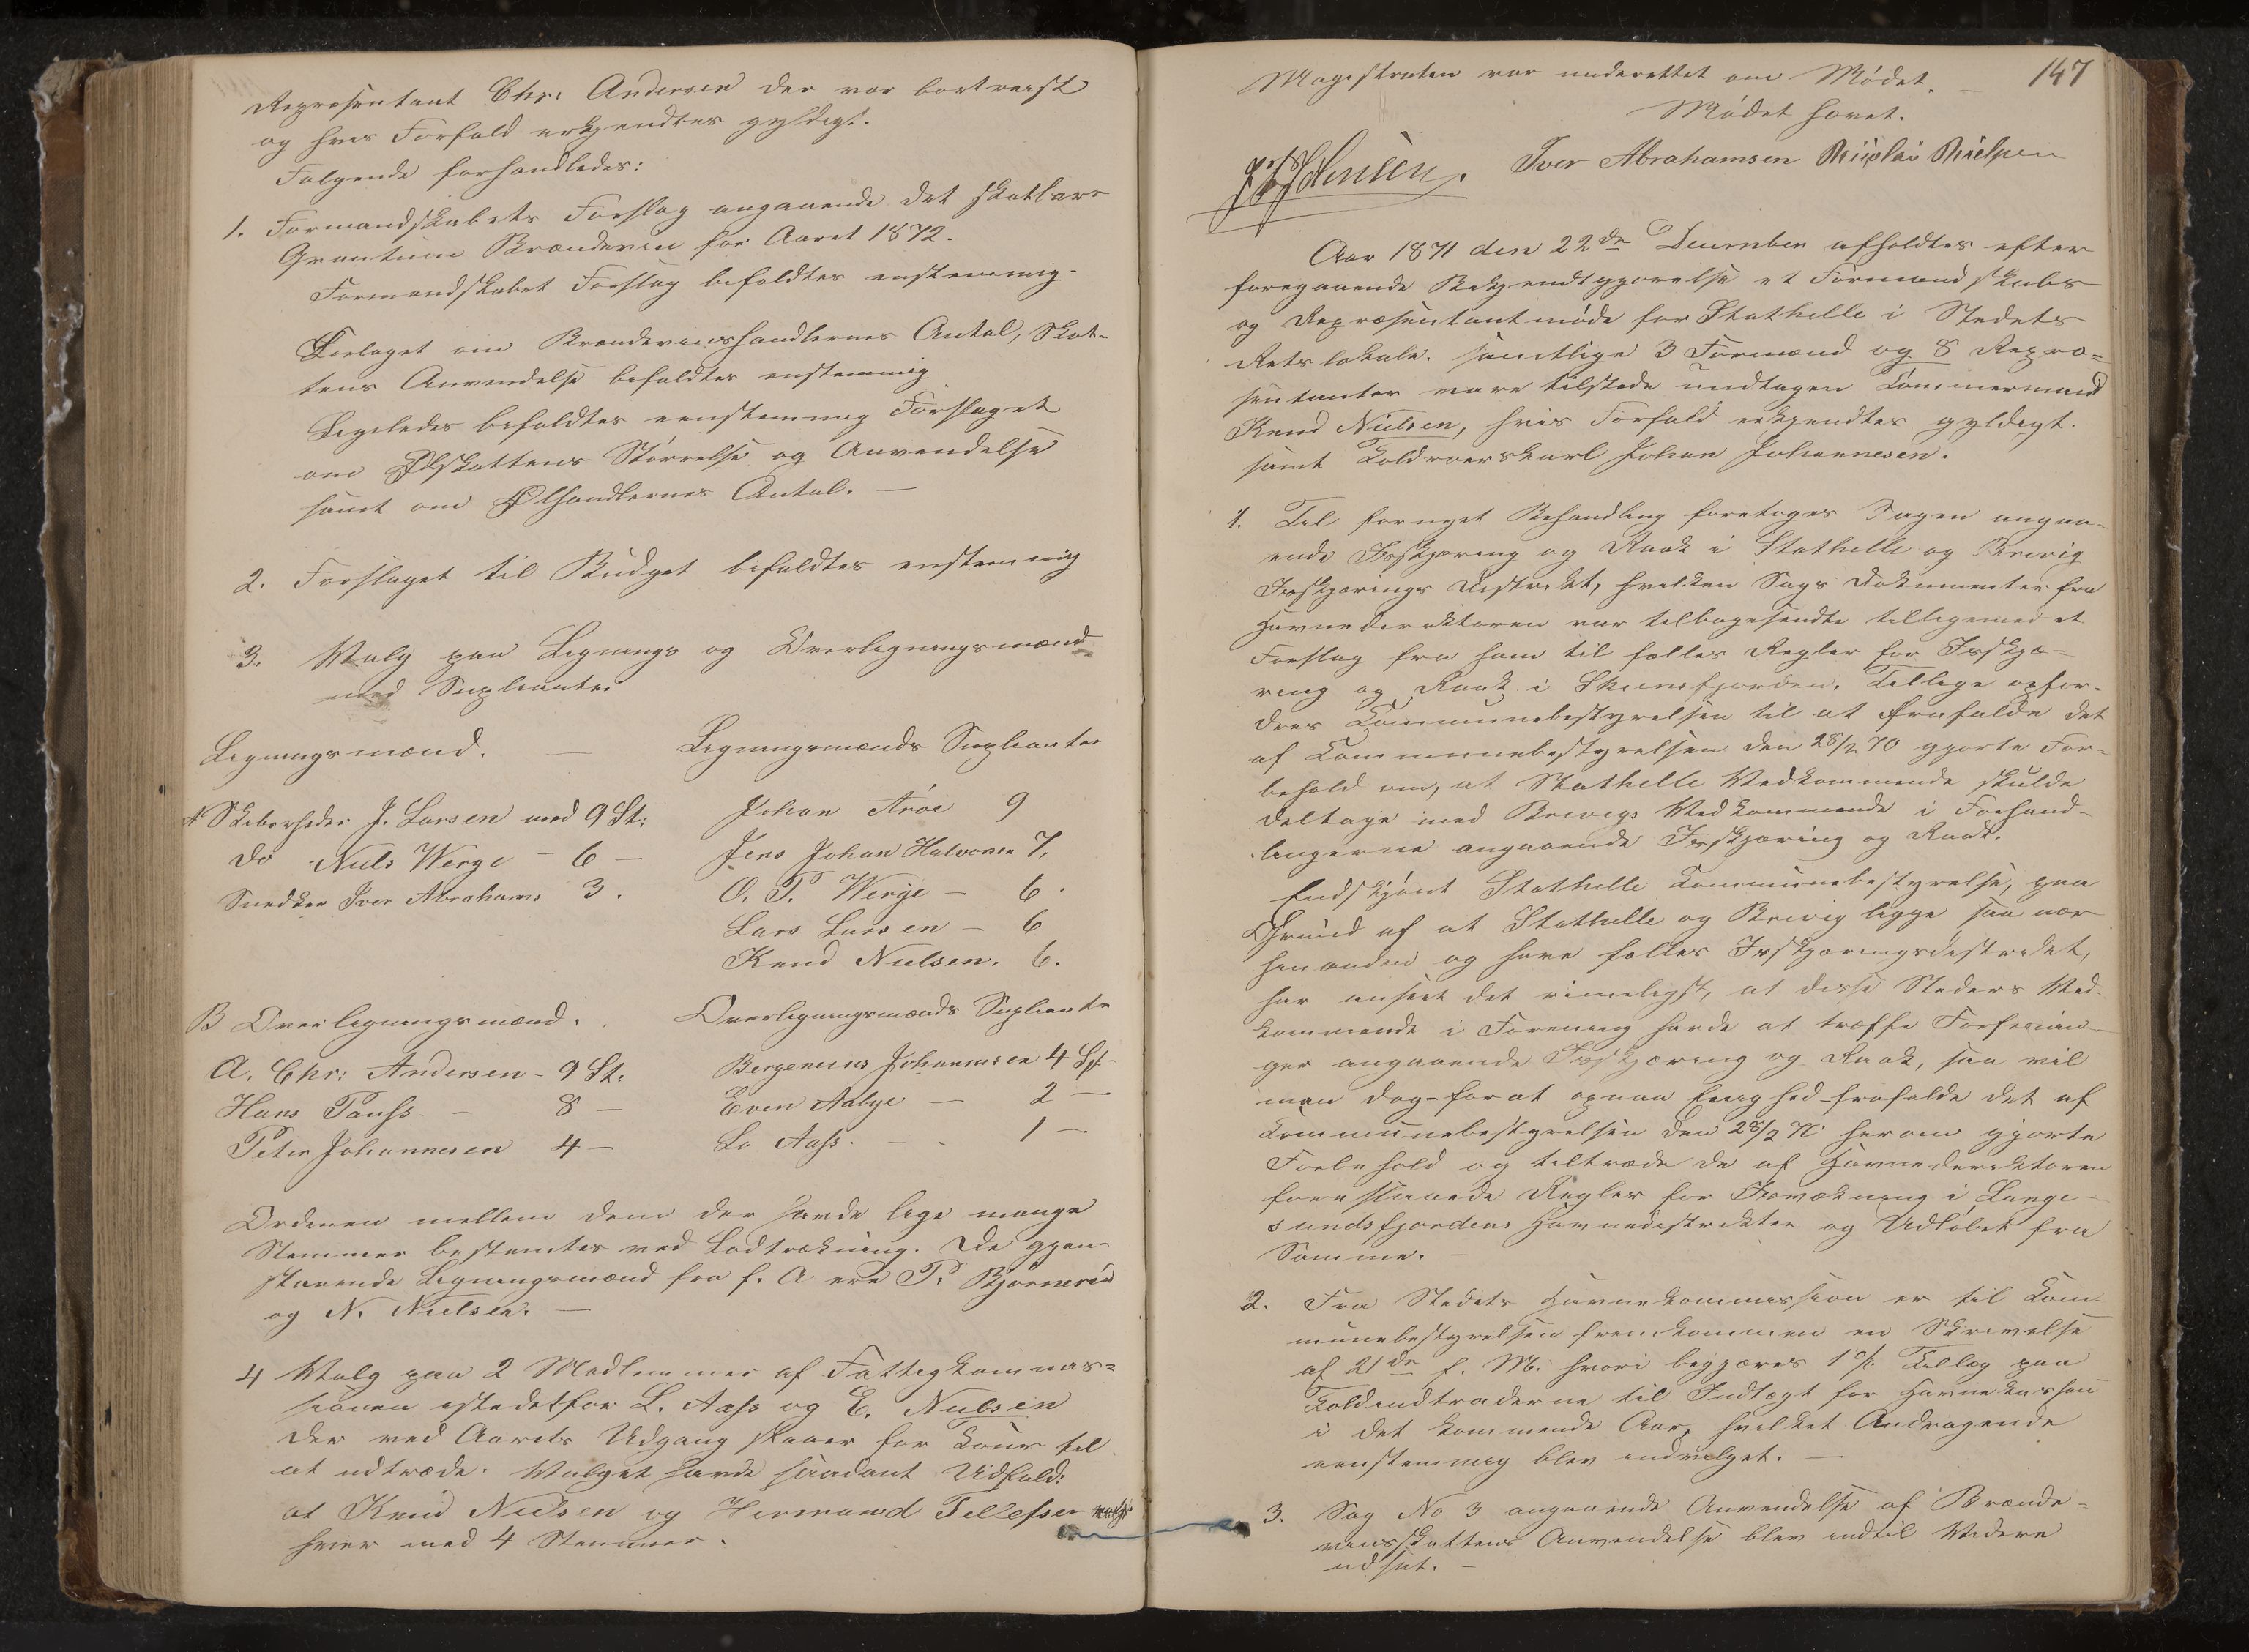 Representant Chr: Andersen der var bortreist
og hvis Forfald erkjendtes gyldigt.
Følgende forhandledes:
1. Formandskabets Forslag angaaende det skatbare
Qvantum Brændeviin for Aaret 1872.
Formandskabet Forslag befaldtes enstemmig.
Forlaget om Brændeviinshandlernes Antal, Skat-
tens Anvendelse befaldtes enstemmig
Ligeledes befaldtes eenstemmig Forslaget
om Ølskattens Størrelse og Anvendelse
samt om Ølhandlernes Antal. —
2. Forslaget til Budget befaldtes enstemmig
3. Valg paa Lignings og Overligningsmænd
med Suplianter
Ligningsmænd. — Ligningsmænds Suplianter
A Skibsrheder J. Larsen med 9 St: Johan Arøe 9
do Niels Werge — 6 — Jens Johan Halvorsen 7.
Snedker Iver Abrahams 3. O. P. Werge — 6.
Lars Larsen — 6
Knud Nielsen. 6.
B Overligningsmænd. Overligningsmænds Suplianter
A. Chr: Andersen — 9 St: Bergenius Johannesen 4 St —
Hans Pauss — 8 — Even Aabye — 2 —
Peter Johannesen 4 — Lo Aass. — 1 —
Ordenen mellem dem der havde lige mange
Stemmer bestemtes ved Lodtrækning. De gjen-
staaende Ligningsmænd fra f. A ere P. Bjørnerud
og N. Nielsen. —
4 Valg paa 2 Medlemmer af Fattigkommis=
sionen istedetfor L. Aass og E. Nielsen
der ved Aarets Udgang staaer for Tour til
at udtræde. Valget havde saadant Udfald:
at Knud Nielsen og Hermand Tellefsen valgt
hver med 4 Stemmer.
147
Magistraten var underettet om Mødet. —
Mødet hævet.
Iver Abrahamsen
Aar 1871 den 22de December afholdtes efter
foregaaende Bekjendtgjørelse et Formandskabs
og Repræsentantmøde for Stathelle i Stedets
Retslokale. samtlige 3 Formænd og 8 Repræ=
sentanter vare tilstede undtagen Tømmermand
Knud Nielsen, hvis Forfald erkjendtes gyldigt.
samt Toldroerskarl Johan Johannesen.
1. Til fornyet Behandling foretoges Sagen angaa-
ende Isskjæring og Raak i Stathelle og Brevig
Isskjærings Distrikt, hvilken Sags Dokumenter fra
Havnedirektoren var tilbagesendte tilligemed et
Forslag fra ham til fælles Regler for Isskjæ=
ring og Raak i Skiensfjorden. Tillige opfor-
dres Kommunebestyrelsen til at frafalde det
af Kommunebestyrelsen den 28/2 70 gjorte For-
behold om, at Stathelle Vedkommende skulde
deltage med Brevigs Vedkommende i Forhand-
lingerne angaaende Isskjæring og Raak.
Endskjønt Stathelle Kommunebestyrelse, paa
Grund af at Stathelle og Brevig ligge saa nær
hinanden og have fælles Isskjæringsdistrikt,
har anseet det rimeligst, at disse Steders Ved-
kommende i Forening havde at træffe Forføinin-
ger angaaende Isskjæring og Raak, saa vil
man dog — for at opnaa Enighed — frafalde det af
Kommunebestyrelsen den 28/2 70 herom gjorte
Forbehold og tiltræde de af Havnedirektoren
foreslaaede Regler for Isvækning i Lange-
sundsfjordens Havnedistrikter og Udløbet fra
Samme. —
2. Fra Stedets Havnekommission er til Kom-
munebestyrelsen fremkommen en Skrivelse
af 21de f. M. hvori begjæres 1 % Tillæg paa
Toldindtraderne til Indtægt for Havnekassen
i det kommende Aar, hvilket Andragende
eenstemmig blev indvilget. —
3. Sag No 3 angaaende Anvendelse af Brænde=
vinsskattens Anvendelse blev indtil Videre
udsat. —